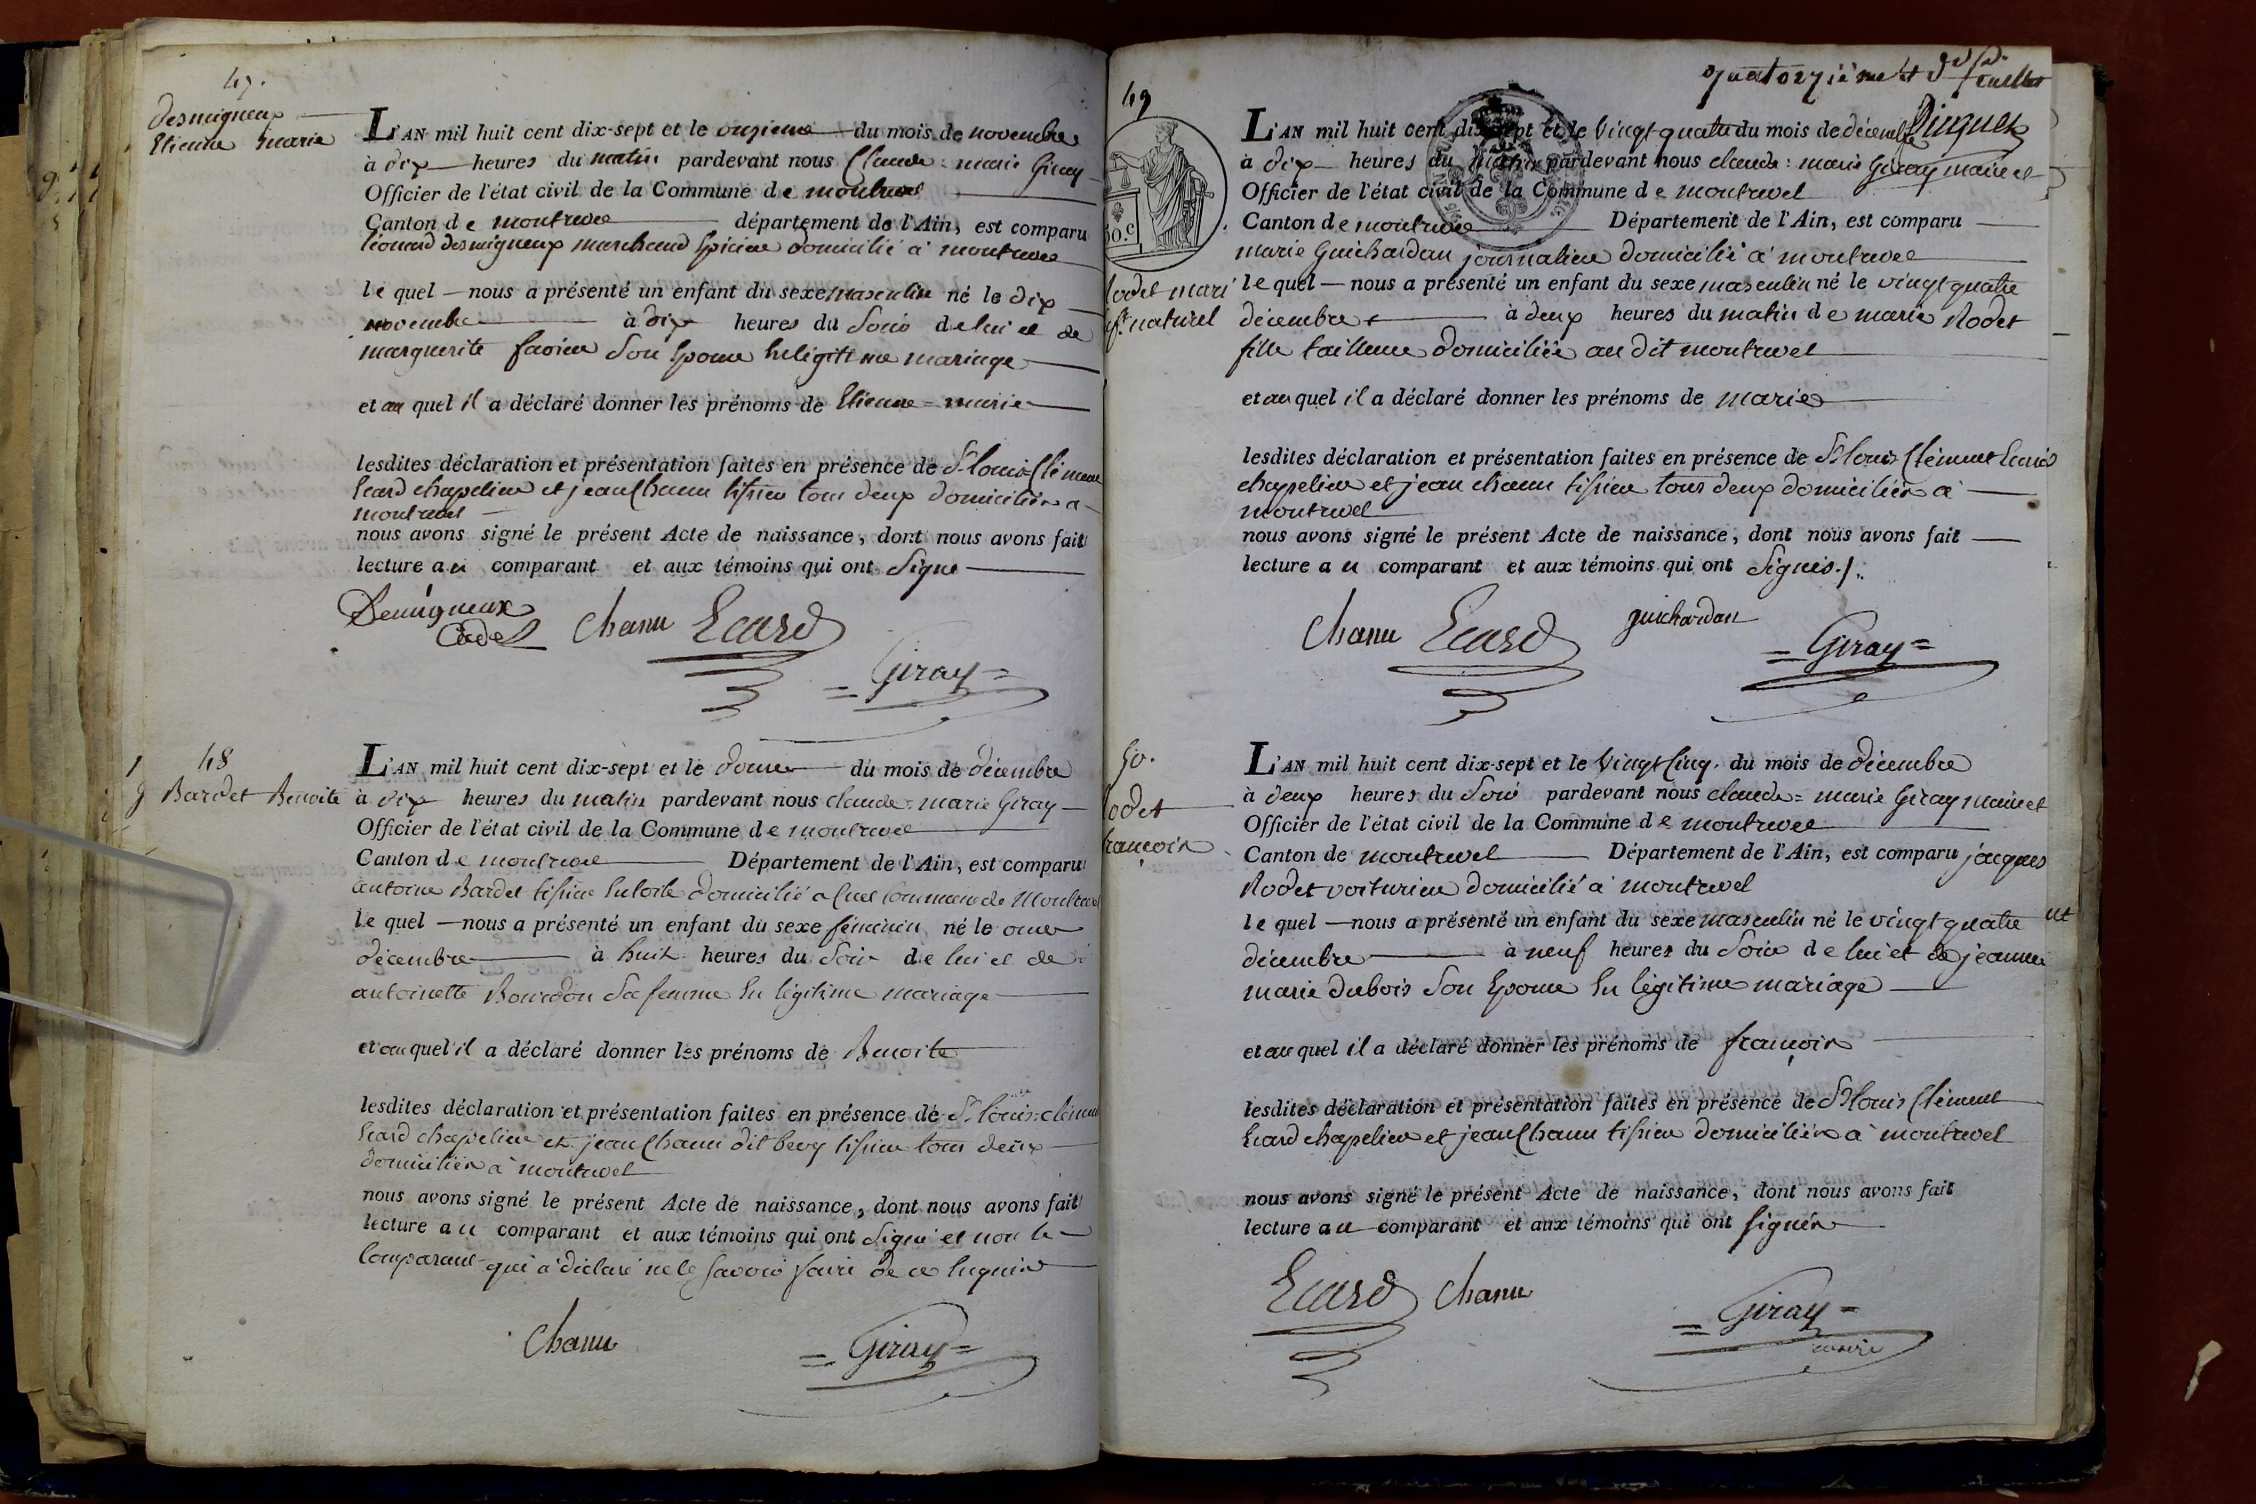 47.
Desmigneux
Etienne marie
L'AN mil huit cent dix-sept et le onzieme du mois de novembre
à dix heures du matin pardevant nous Claude=marie Giray
Officier de l'état civil de la Commune de montrevel
Canton de montrevel département de l'Ain, est comparu
léonard desmigneux marchand Epicier domicilié à montrevel
le quel nous a présenté un enfant du sexe masculin né le dix
novembre à dix heures du Soir de lui et de
marguerite favier Son Epouse En légitime mariage
et au quel il a déclaré donner les prénoms de Etienne=marie
lesdites déclaration et présentation faites en présence de Sr. louis Clément
Ecard chapelier et jean Chanu tissier tous deux domiciliés a
montrevel
nous avons signé le présent Acte de naissance, dont nous avons fait
lecture au comparant et aux témoins qui ont Signé
Desmigneux
Cadet
Chanu Ecard
=Giray=
48
Bardet Benoite
L'AN mil huit cent dix-sept et le douze du mois de décembre
à dix heures du matin pardevant nous claude=marie Giray
Officier de l'état civil de la Commune de montrevel
Canton de montrevel Département de l'Ain, est comparu
antoine Bardet tissier En toile domicilié a Cuet Commune de Montrevel
le quel nous a présenté un enfant du sexe féminin né le onze
décembre à huit heures du Soir de lui et de
antoinette Bourdon Sa femme En légitime mariage
et au quel il a déclaré donner les prénoms de Benoite
lesdites déclaration et présentation faites en présence de Sr. louis=clément
Ecard chapelier et jean Chanu dit bevy tissier tous deux
domiciliés a montrevel
nous avons signé le présent Acte de naissance, dont nous avons fait
lecture au comparant et aux témoins qui ont Signé et non le
Comparant qui a déclaré ne le Savoir faire de ce Enquis
Chanu
=Giray=
quatorzième et dr. feuillet
Dinguet
49
30.C
Rodet marie
nft. naturel
L'AN mil huit cent dix-sept et le Vingt quatre du mois de décembre
à dix heures du matin pardevant nous claude=marie Giray maire et
Officier de l'état civil de la Commune de montrevel
Canton de montrevel Département de l'Ain, est comparu
marie Guichardan journalier domicilié à montrevel
le quel nous a présenté un enfant du sexe masculin né le vingt quatre
décembre à deux heures du matin de marie Rodet
fille tailleuse domiciliée au dit montrevel
et au quel il a déclaré donner les prénoms de marie
lesdites déclaration et présentation faites en présence de Sr. louis Clément Ecard
chapelier et jean chanu tissier tous deux domiciliés à
montrevel
nous avons signé le présent Acte de naissance, dont nous avons fait
lecture au comparant et aux témoins qui ont Signés./.
Chanu Ecard guichardan
=Giray=
50.
Rodet
françois
L'AN mil huit cent dix-sept et le Vingt Cinq du mois de décembre
à deux heures du Soir pardevant nous claude=marie Giray maire et
Officier de l'état civil de la Commune de montrevel
Canton de montrevel Département de l'Ain, est comparu jacques
Rodet voiturier domicilié à montrevel
le quel nous a présenté un enfant du sexe masculin né le vingt quatre
décembre à neuf heures du Soir de lui et de jeanne
marie dubois Son Epouse En légitime mariage
et au quel il a déclaré donner les prénoms de françois
lesdites déclaration et présentation faites en présence de Sr. louis Clément
Ecard chapelier et jean Chanu tissier domiciliés à montrevel
nous avons signé le présent Acte de naissance, dont nous avons fait
lecture au comparant et aux témoins qui ont Signés
Ecard Chanu
=Giray=
maire